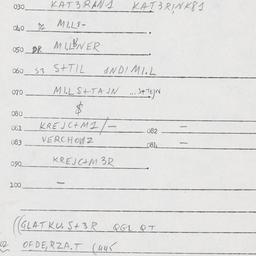 030 KAT3RAN1 KAT3RINK81
040 % MLLS-
050 DR MLLNER
060 S+TIL 1NDIMI.L
070 MLLS+TAIN ...S+TEJN
080 $
081 KREJC+M1/— 082 —
083 VERCHOM2 084 —
090 KREJC+M3R
100 —
((GLATKU.S+3R QGL QT
OFDE,RZA.T (445